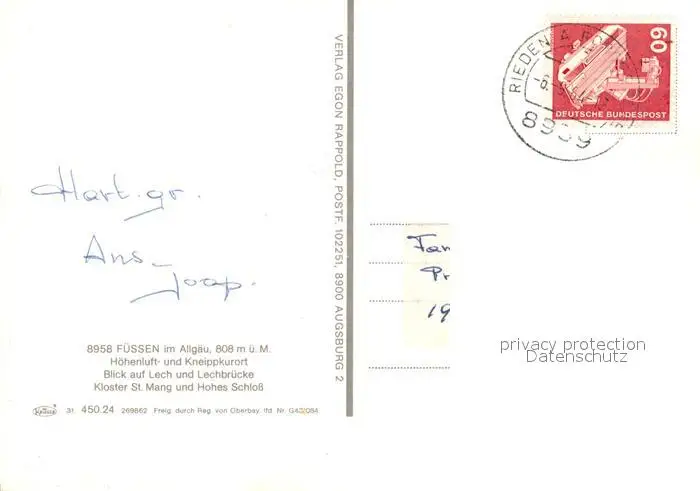 Hart. gr.
Ans-
Joop.
8958 FÜSSEN im Allgäu, 808 m ü. M.
Höhenluft- und Kneippkurort
Blick auf Lech und Lechbrücke
Kloster St. Mang und Hohes Schloß
Krüger 31. 450.24 269862 Freig. durch Reg. von Oberbay. lfd. Nr. G42/084
VERLAG EGON RAPPOLD, POSTF. 102251, 8900 AUGSBURG 2
RIEDEN
8959
60
DEUTSCHE BUNDESPOST
Fam
Pr
19
privacy protection
Datenschutz